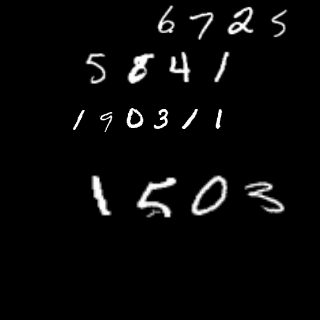 6725
5841
190311
1503